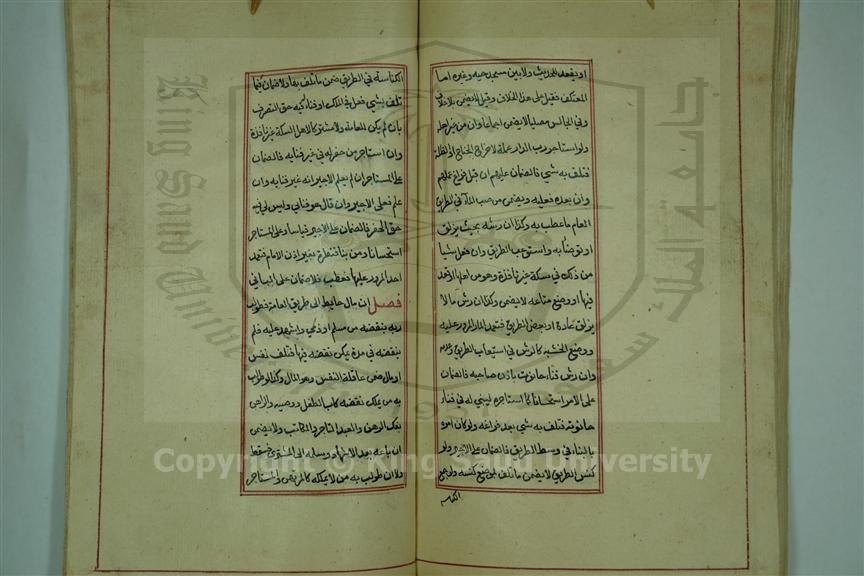 او يقعد للحديث ولا بين مسجد حيه وغيره اما
المعتكف فقيل على هذا الخلاف وقيل لا يضمن بلا خلاف
وفي الجالس مصليا لا يضمن اجماعا وان من غير اهله
ولو استاجر رب الدار عملة لاخراج الجناح او الظلة
فتلف به شي فالضمان عليهم ان قبل فراغ عملهم
وان بعده فعليه ويضمن من صب الماء في الطريق
العام ما عطب به وكذا ان رشه بحيث يزلق
او توضا به واستوعب الطريق وان فعل شيا
من ذلك في سكة غير نافذة وهو من اهلها او قعد
فيها او وضع متاعه لا يضمن وكذا ان رش ما لا
يزلق عادة او بعض الطريق فتعمد المار المرور عليه
ووضع الخشبه كالرش في استيعاب الطريق وعدمه
وان رش فناء حانوت باذن صاحبه فالضمان
على الامر استحسانا كما استاجره ليبني له في فناء
حانوته فتلف به شي بعد فراغه ولو كان امره
بالبناء في وسط الطريق فالضمان على الاجير ولو
كنس الطريق لا يضمن ما تلف بموضع كنسه ولو جمع
الكناسه
الكناسة في الطريق ضمن ما تلف بها ولا ضمان فيما
تلف بشي فعل في الملك او فناء فيه حق التصرف
بان لم يكن للعامة ولا مشترك لاهل السكة غير نافذة
وان استاجر من حفر له في غير فنايه فالضمان
على المستاجر ان لم يعلم الاجير انه غير فنايه وان
علم فعلى الاجير وان قال هو فنايي وليس لي فيه
حق الحفر فالضمان على الاجير قياسا وعلى المستاجر
استحسانا ومن بنا قنطرة بغير اذن الامام فتعمد
احد المرور عليها فعطب فلا ضمان على الباني
فصل ان مال حايط الى طريق العامة فطولب
ربه بنقضه من مسلم او ذمي واشهد عليه فلم
ينقضه في مدة يمكن نقضه فيها فتلف نفس
او مال ضمن عاقلة النفس وهو المال وكذا لو طولب
به من يملك نقضه كاب الطفل ووصيه والراهن
بفك الرهن والعبد التاجر والمكاتب ولا يضمن
ان باعه بعد الاشهاد وسلمه الى المشتري فسقط
ولا ان طولب به من لا يملكه كالمرتهن والمستاجر
Copyright © King Saud University
King Saud University
جامعة الملك سعود